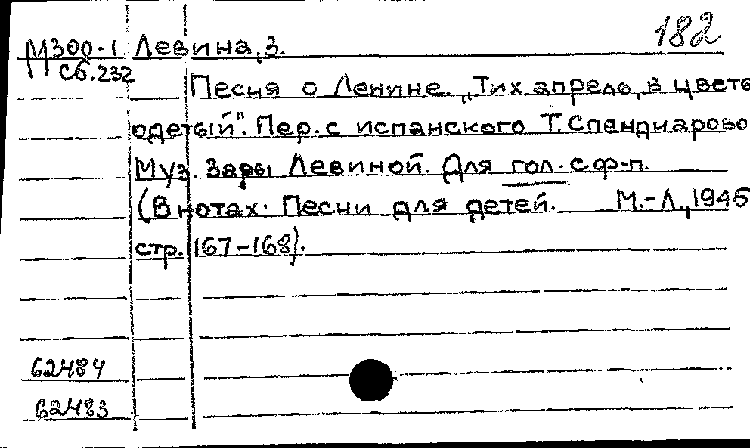 182
М300-1 Левина, З.
Сб.232
Песня о Ленине „Тих апрель, в цветы
одетый". Пер. с испанского Т. Спендиаровой
Муз. Зары Левиной. Для гол. с ф-п.
(В нотах: Песни для детей. М.-Л., 1945
стр. 167-168).
62484
62483